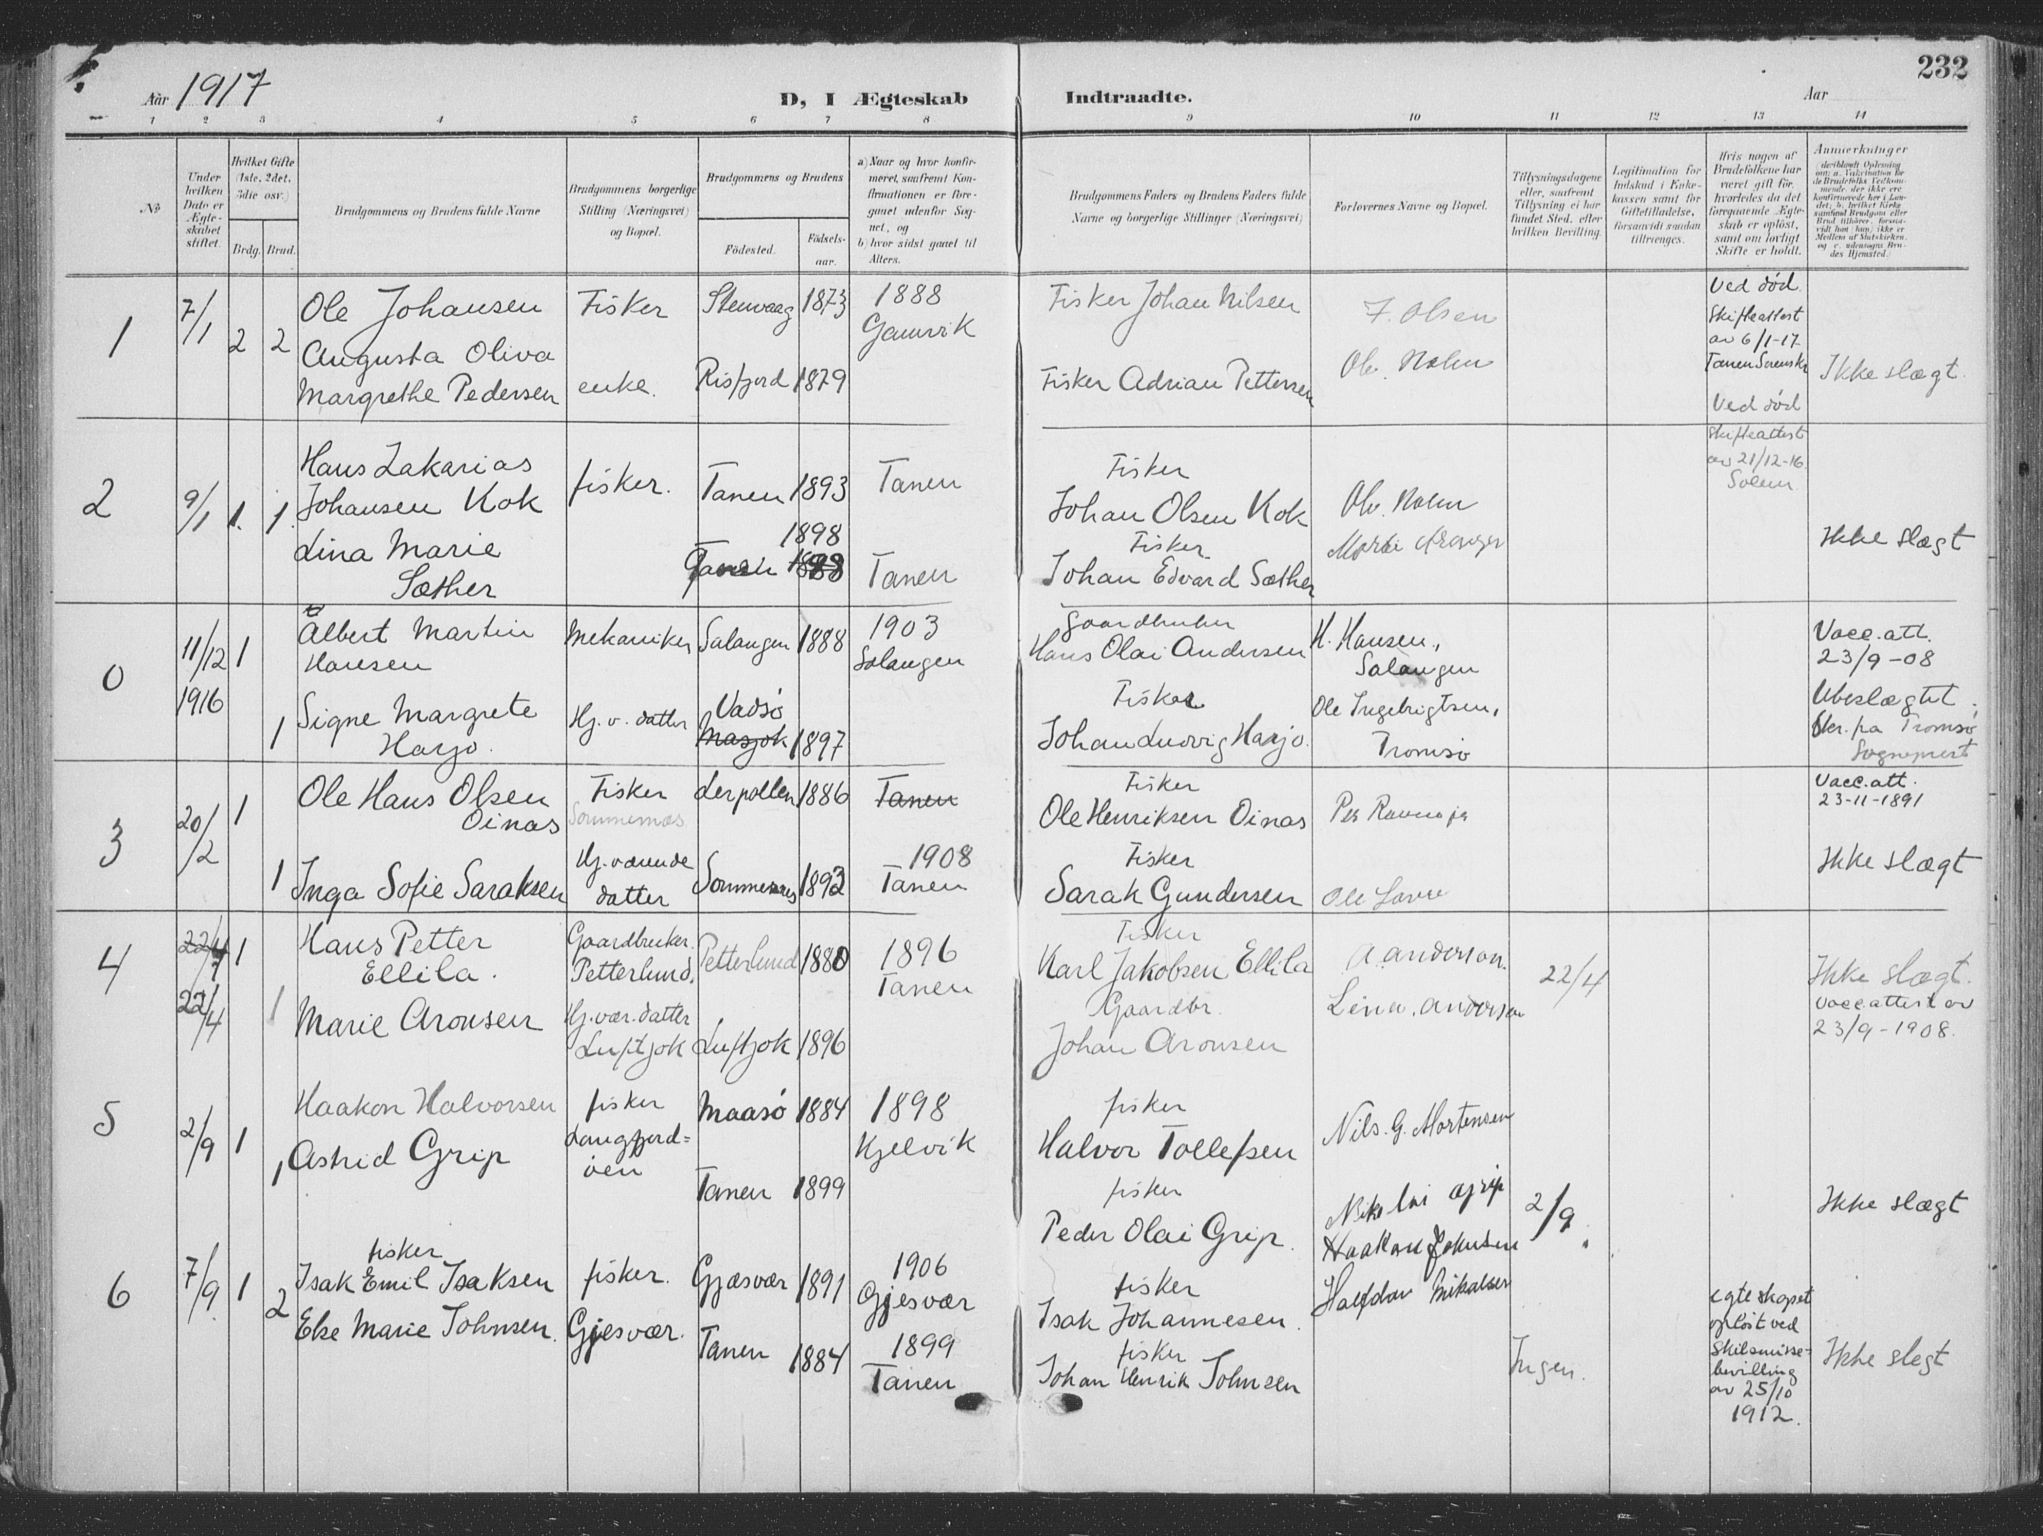 232
Aar 1917
D, I Ægteskab Indtraadte.
Aar
1 2 3 4 5 6 7 8 9 10 11 12 13 14
No
Under hvilken Dato er Ægteskabet stiftet.
Hvilket Gifte (1ste, 2det, 3die osv.)
Brdg. Brud.
Brudgommens og Brudens fulde Navne
Brudgommens borgerlige Stilling (Næringsvei) og Bopæl.
Brudgommens og Brudens
Födested.
Födselsaar.
a) Naar og hvor konfirmeret, saafremt Konfirmationen er foregaaet udenfor Sognet, og
b) hvor sidst gaaet til Alters.
Brudgommens Faders og Brudens Faders fulde Navne og borgerlige Stillinger (Næringsvei)
Forlovernes Navne og Bopæl.
Tillysningsdagene eller, saafremt Tillysning ei har fundet Sted, efter hvilken Bevilling.
Legitimation for Indskud i Enkekassen samt for Giftetilladelse, forsaavidt saadan tiltrænges.
Hvis nogen af Brudefolkene har været gift för, hvorledes da det foregaaende Ægteskab er oplöst, samt om lovligt Skifte er holdt.
Anmerkninger
1 7/1 2 2
Ole Johansen Fisker Stenvaag 1873 1888 Gamvik
Fisker Johan Nilsen
F. Olsen
Ved død. Skifteattest av 6/1-17 Tanen Sorenskr
Augusta Oliva Margrethe Pedersen enke. Risfjord 1879
Fisker Adrian Pettersen
Ole. Holm
Ved død Skifteattest av 21/12-16 Solem
Ikke slægt.
2 9/1 1. 1.
Hans Zakarias Johansen Kok fisker. Tanen 1893 Tanen
Fisker Johan Olsen Kok
Ole. Holm
Lina Marie Sæther Tanen 1898 Tanen
Fisker Johan Edvard Sæther
Ikke slægt
0 11/12 1916 1 1
Albert Martin Hansen Mekaniker Salangen 1888 1903 Salangen
Gaardbruker Hans Olai Andersen
H. Hansen, Salangen
Vacc.att. 23/9-08
Signe Margrete Harjo. Hj. v. datter Vadsø Masjok 1897
Fisker Johan Ludvig Harjo.
Ole Ingebrigtsen, Tromsø
Ubeslægtet.
3 20/2 1 1
Ole Hans Olsen Oinas Fisker Sommernes Lerpollen 1886 Tanen
Fisker Ole Henriksen Oinas
Vacc.att. 23-11-1891
Inga Sofie Saraksen Hj. værende datter Sommernes 1893 1908 Tanen
Fisker Sarak Gundersen
Ikke slægt
4 22/4 1 1
22/4
Hans Petter Ellila. Gaardbruker. Petterlund. Petterlund 1880 1896 Tanen
Fisker Karl Jakobsen Ellila
A. Anderson.
22/4
Ikke slægt. Vacc.attest av 23/9-1908.
Marie Aronsen Hj. vær. datter Luftjok Luftjok 1896
Gaardbr. Johan Aronsen
Lina. Anderson
5 2/9 1 1
Haakon Halvorsen fisker Langfjordöen Maasö 1884 1898 Kjelvik
fisker Halvor Tollefsen
Nils. G. Mortensen
Astrid Grip Tanen 1899
fisker Peder Olai Grip.
Nikolai Grip
2/9.
Ikke slægt
6 7/9. 1 2
fisker
Isak Emil Isaksen fisker. Gjesvær. Gjæsvær 1891 1906 Gjesvær
fisker Isak Johannesen.
Haakon Johnsen
Halfdan Mikalsen
Else Marie Johnsen. Tanen 1884 1899 Tanen
fisker Johan Henrik Johnsen
Ingen.
Egteskapet oplöst ved Skilsmissebevilling av 25/10 1912.
Ikke slegt